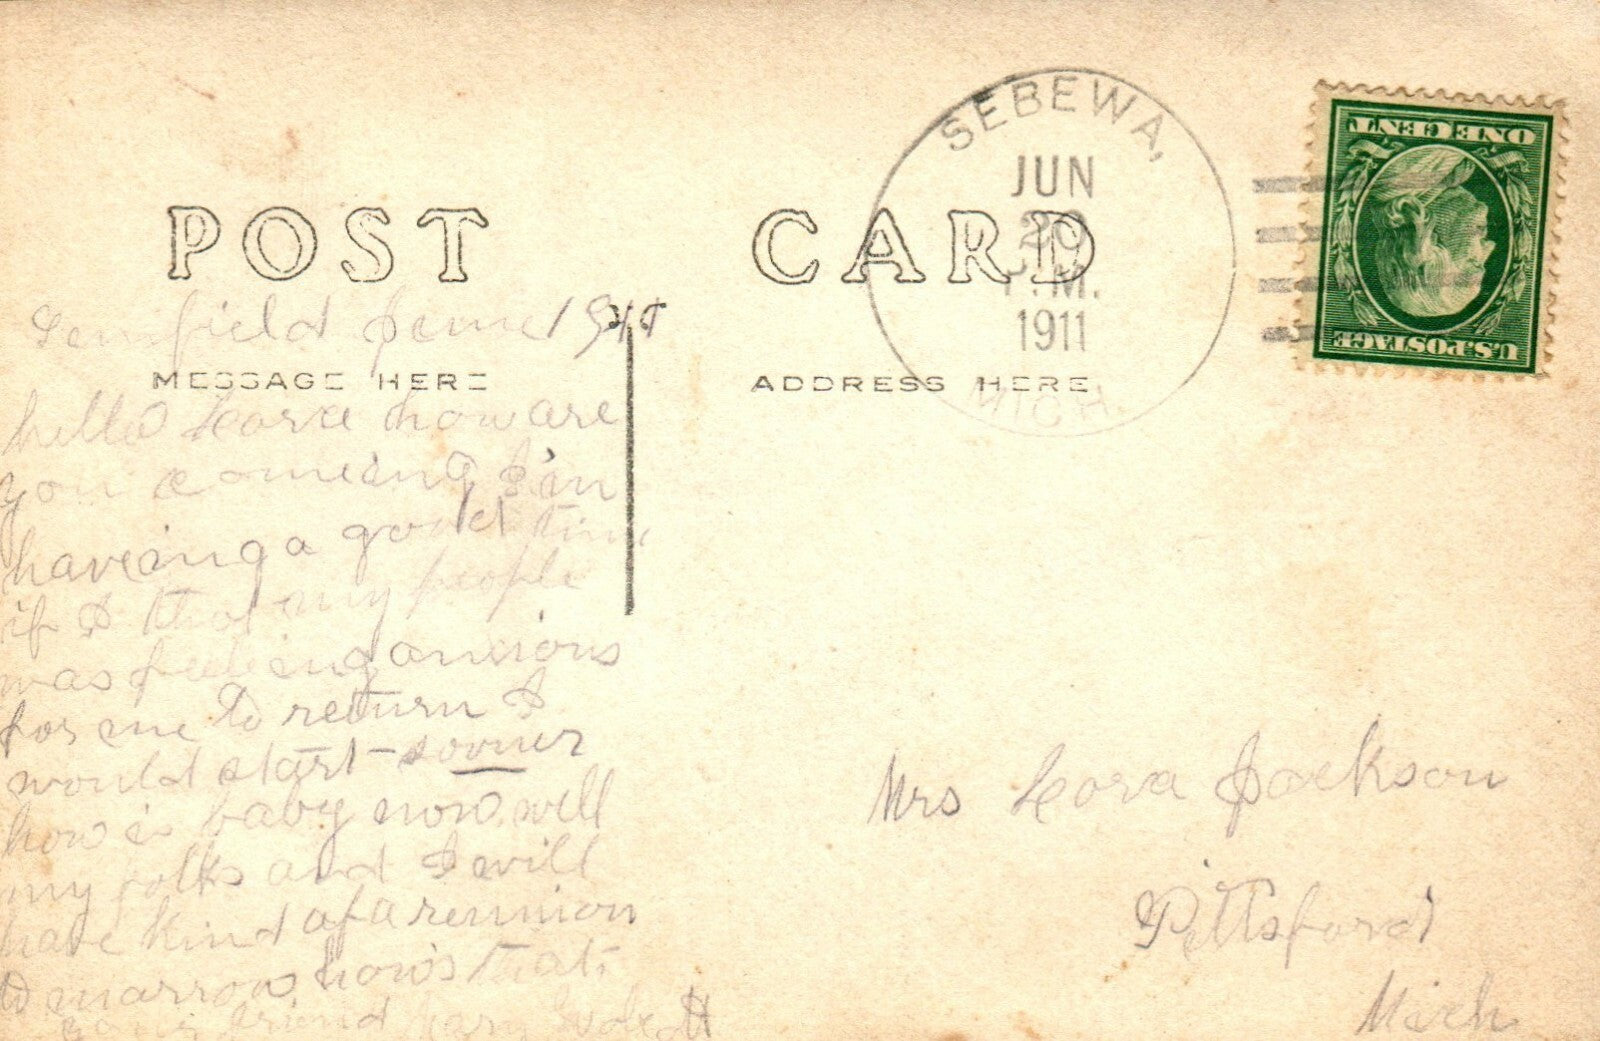 SEBEWA,
JUN
20
P.M.
1911
MICH.
ONE CENT
U.S. POSTAGE
POST CARD
MESSAGE HERE
ADDRESS HERE
June 1911
hello Cora how are
you comeing I'm
haveing a good time
if I that my people
was feeleing anxious
for me to return I
would start - sooner
how is baby now. well
my folks and I will
have kind of a reunion
to marrow, how's that.
your friend
Mrs Cora Jackson
Pittsford
Mich